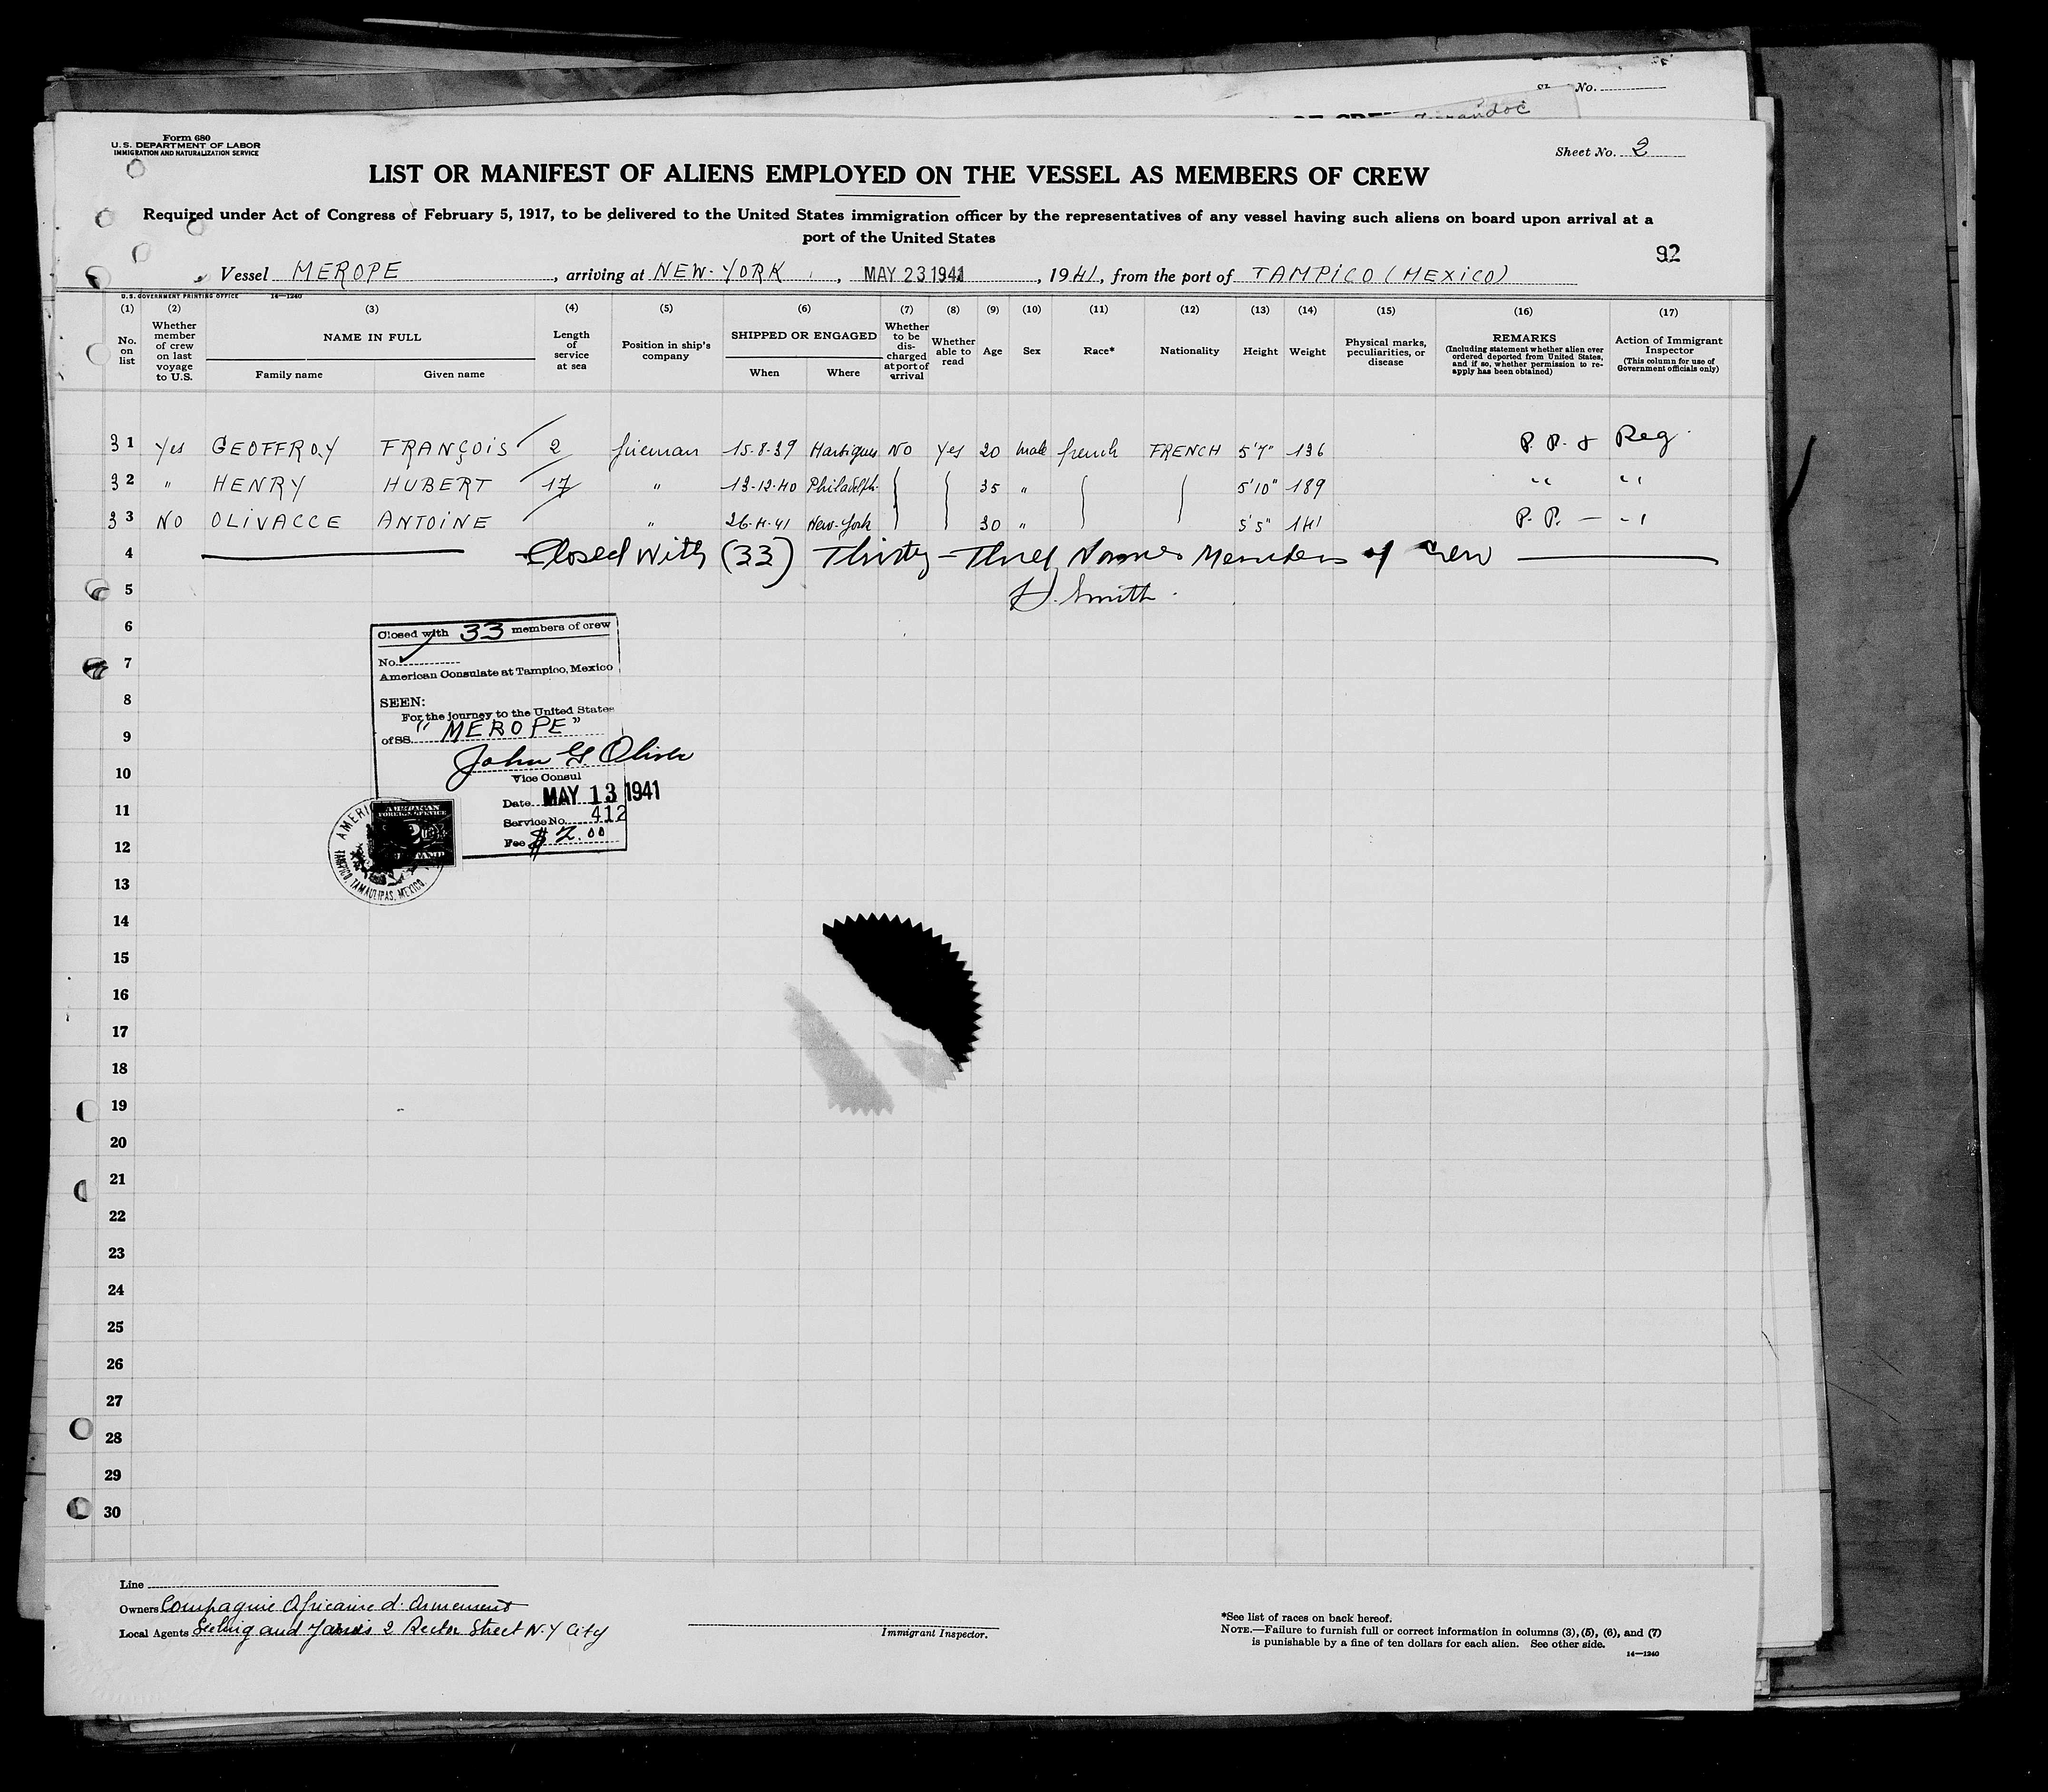 No.
Form 680
U.S. DEPARTMENT OF LABOR
IMMIGRATION AND NATURALIZATION SERVICE
Sheet No. 2
LIST OR MANIFEST OF ALIENS EMPLOYED ON THE VESSEL AS MEMBERS OF CREW
Required under Act of Congress of February 5, 1917, to be delivered to the United States immigration officer by the representatives of any vessel having such aliens on board upon arrival at a
port of the United States
92
Vessel MEROPE, arriving at NEW-YORK, MAY 23 1941, 1941, from the port of TAMPICO (MEXICO)
U.S. GOVERNMENT PRINTING OFFICE 14—1240
(1) (2) (3) (4) (5) (6) (7) (8) (9) (10) (11) (12) (13) (14) (15) (16) (17)
No. on list
Whether member of crew on last voyage to U.S.
NAME IN FULL
Family name Given name
Length of service at sea
Position in ship's company
SHIPPED OR ENGAGED
When Where
Whether to be discharged at port of arrival
Whether able to read
Age
Sex
Race*
Nationality
Height
Weight
Physical marks, peculiarities, or disease
REMARKS
(Including statement whether alien ever ordered deported from United States, and if so, whether permission to reapply has been obtained)
Action of Immigrant Inspector
(This column for use of Government officials only)
31 Yes GEOFFROY FRANÇOIS 2 fireman 15.8.39 Martigues NO Yes 20 male french FRENCH 5'7" 136 P.P. & Reg.
32 " HENRY HUBERT 17 " 13.12.40 Philadelph. 35 " 5'10" 189 " "
33 NO OLIVACCE ANTOINE " 26.4.41 New-York 30 " 5'5" 141 P.P. — "
4 Closed With (33) Thirty-Three Names Members of Crew
5 H. Smith.
6
7
8
9
10
11
12
13
14
15
16
17
18
19
20
21
22
23
24
25
26
27
28
29
30
Closed with 33 members of crew
No.
American Consulate at Tampico, Mexico
SEEN:
For the journey to the United States
of SS. "MEROPE"
John G. Oliver
Vice Consul
Date MAY 13 1941
Service No. 412
Fee $2.00
AMERICAN
FOREIGN SERVICE
TAMPICO, TAMAULIPAS, MEXICO
Line
Owners Compagnie Africaine d'Armement
Local Agents and 2 Rector Street N.Y City
Immigrant Inspector.
*See list of races on back hereof.
NOTE.—Failure to furnish full or correct information in columns (3), (5), (6), and (7)
is punishable by a fine of ten dollars for each alien. See other side.
14—1240